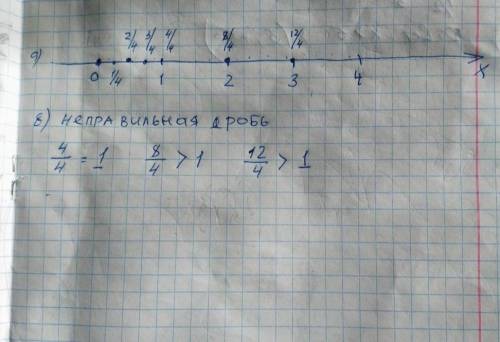 а)
2/4 3/4 4/4 8/4 12/4
0 1/4 1 2 3 4 x
в) неправильная дробь
4/4 = 1 8/4 > 1 12/4 > 1